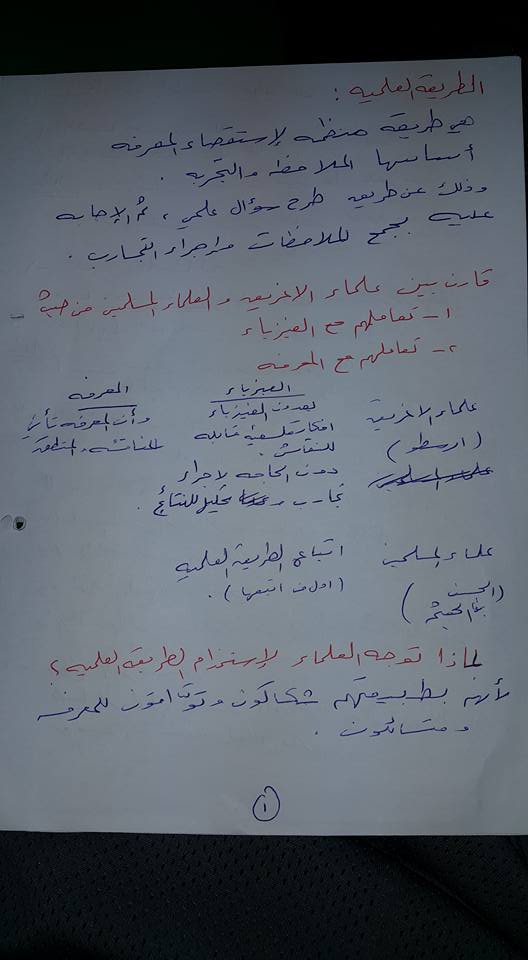 الطريقة العلمية :
هي طريقة منظمة لإستقصاء المعرفه
أساسها الملاحظه والتجربه .
وذلك عن طريق طرح سؤال علمي ، ثم الإجابه
عليه بجمع الملاحظات وإجراء التجارب .
قارن بين علماء الاغريق والعلماء المسلمين من حيث
١- تعاملهم مع الفيزياء
٢- تعاملهم مع المعرفه
الفيزياء
المعرفه
علماء الاغريق
(ارسطو)
يعدون الفيزياء
افكار فلسفية قابله
للنقاش .
دون الحاجه لاجراء
تجارب و تحليل للنتائج .
وأن المعرفه تأتي
والمنطق
علماء المسلمين
(الحسن
بن الهيثم)
اتباع الطريقة العلمية
(اول من اتبعها) .
لماذا توجه العلماء لإستخدام الطريقة العلمية ؟
لأنهم بطبيعتهم شكاكون وتواقون للمعرفه
ومتسائلون .
١